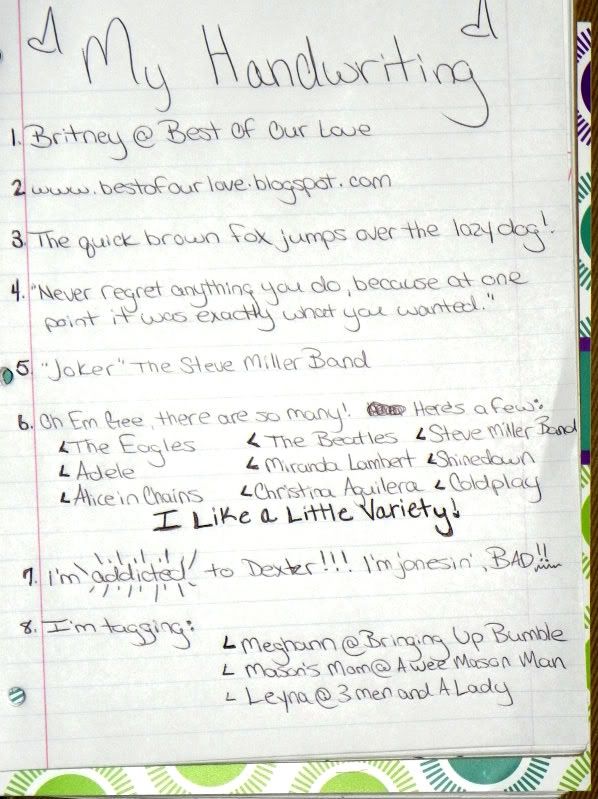 My Handwriting
1. Britney @ Best Of Our Love
2. www.bestofourlove.blogspot.com
3. The quick brown fox jumps over the lazy dog!
4. "Never regret anything you do, because at one
point it was exactly what you wanted."
5. "Joker" The Steve Miller Band
6. Oh Em Gee, there are so many! Here's a few:
The Eagles The Beatles Steve Miller Band
Adele Miranda Lambert Shinedown
Alice in Chains Christina Aguilera Coldplay
I Like a Little Variety!
7. I'm addicted to Dexter!!! I'm jonesin', BAD!!
8. I'm tagging:
Meghann @ Bringing Up Bumble
Mason's Mom @ A Wee Mason Man
Leyna @ 3 men and A Lady